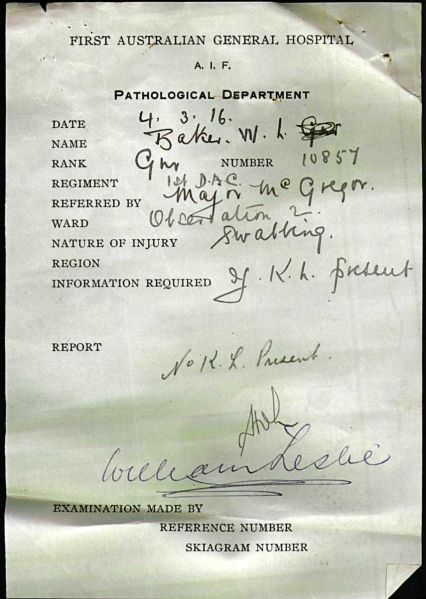 FIRST AUSTRALIAN GENERAL HOSPITAL
A. I. F.
PATHOLOGICAL DEPARTMENT
DATE 4. 3. 16.
NAME Baker. W. L. Gnr
RANK Gnr NUMBER 10857
REGIMENT 1st D.A.C.
REFERRED BY Major McGregor.
WARD Observation 2.
NATURE OF INJURY Swabbing.
REGION
INFORMATION REQUIRED If K. L. present
REPORT No K. L. Present.
William Leslie
EXAMINATION MADE BY
REFERENCE NUMBER
SKIAGRAM NUMBER